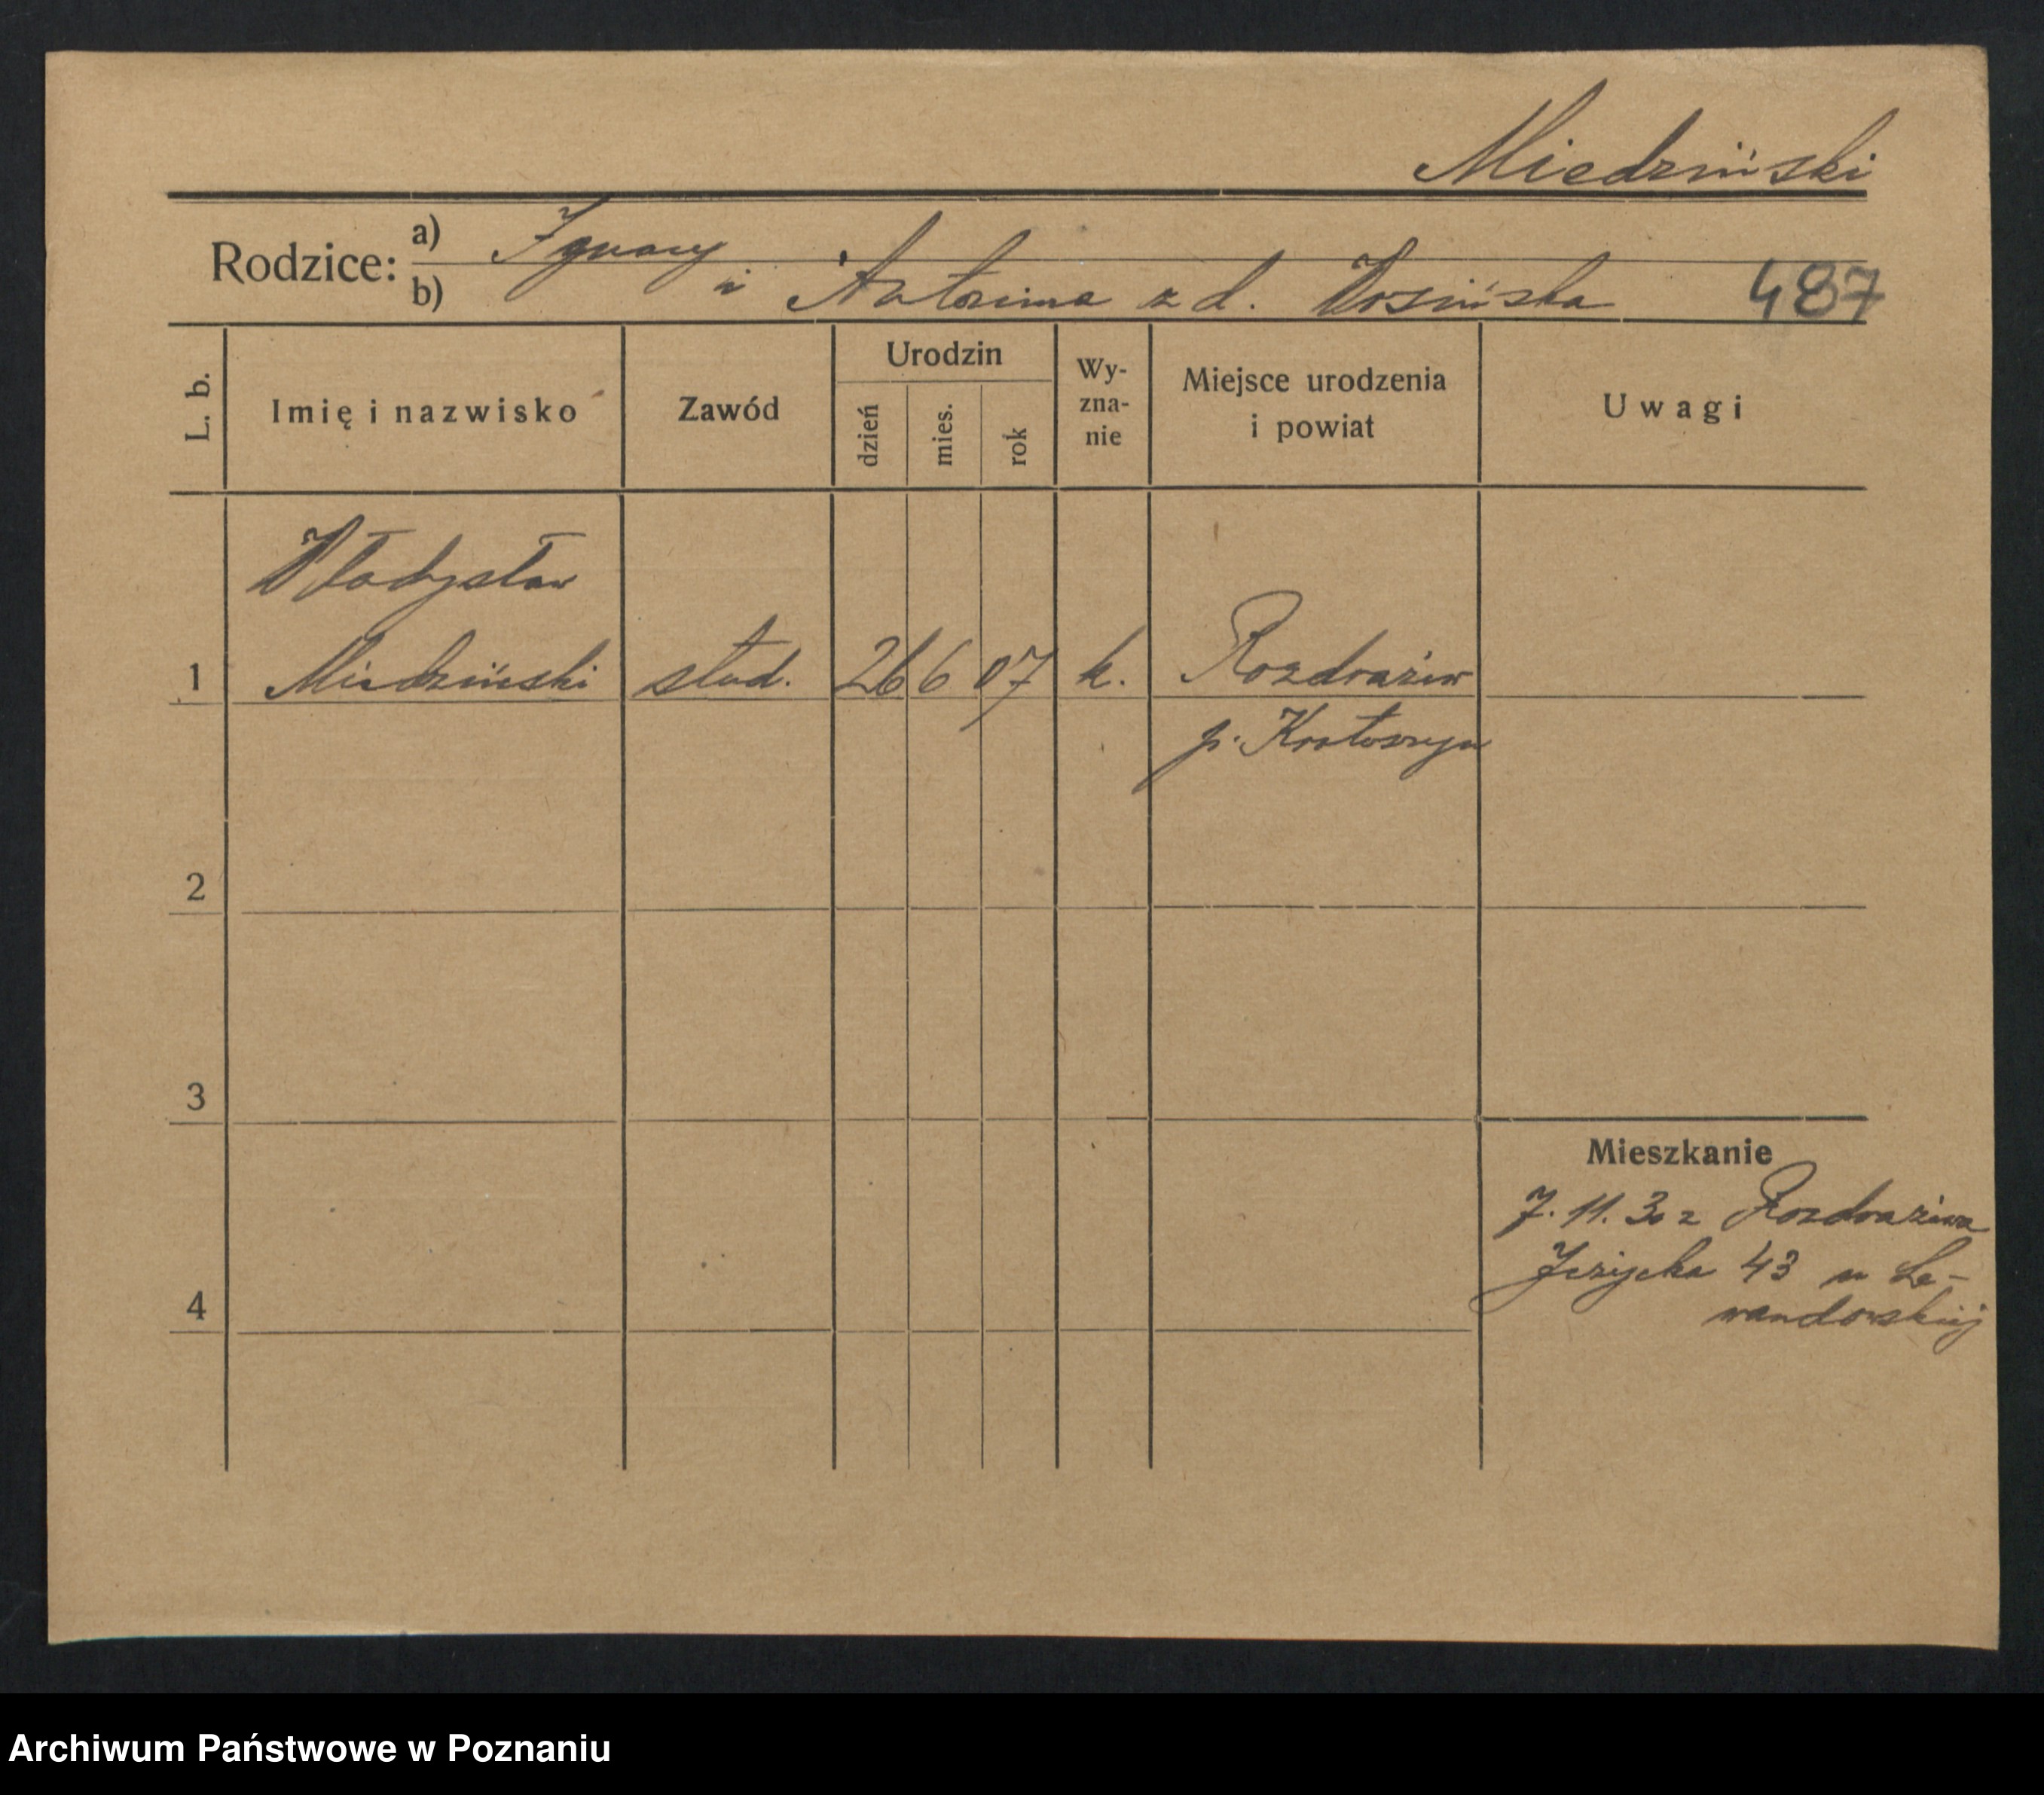 Miedziński
Rodzice: a) Ignacy
b) i Antonina z d. Wosińska 487
L. b. Imię i nazwisko Zawód Urodzin dzień mies. rok Wy-zna-nie Miejsce urodzenia i powiat Uwagi
Władysław
1 Miedziński stud. 26 6 07 k. Rozdrażew
p. Krotoszyn
2
3
Mieszkanie
7. 11. 30 z Rozdrażewa
Jeżycka 43 u Le-
4 wandowskiej
Archiwum Państwowe w Poznaniu